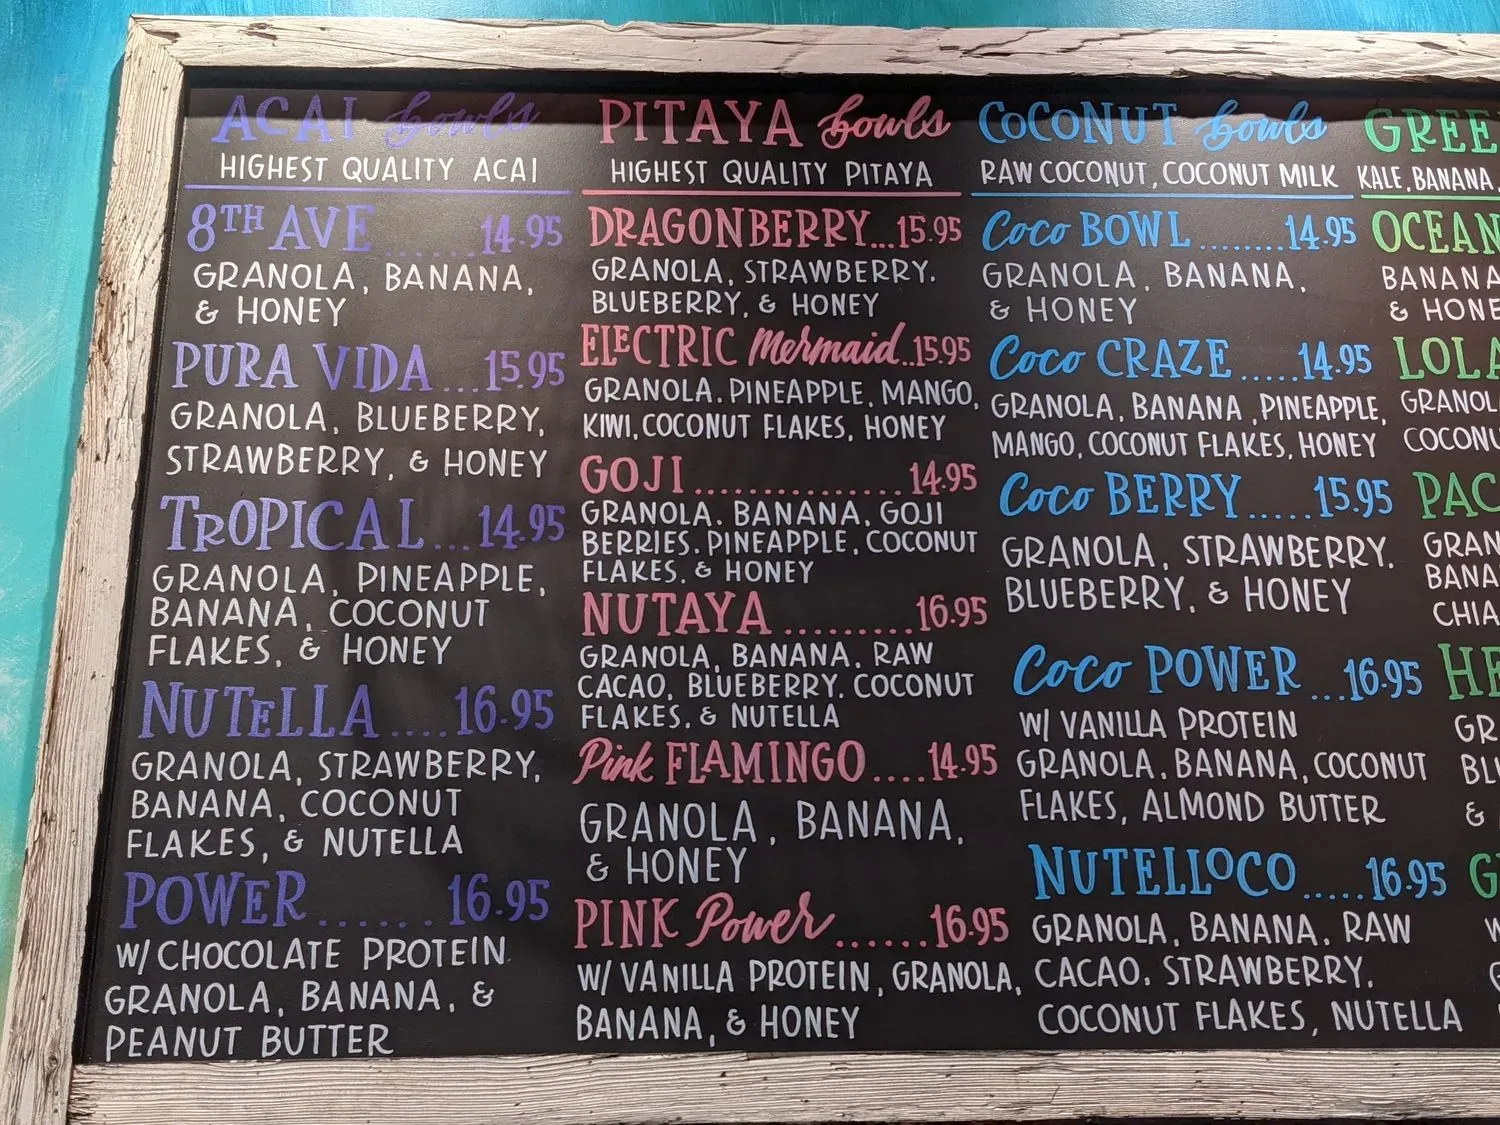 ACAI bowls
HIGHEST QUALITY ACAI
8TH AVE ...... 14.95
GRANOLA, BANANA,
& HONEY
PURA VIDA ... 15.95
GRANOLA, BLUEBERRY,
STRAWBERRY, & HONEY
TROPICAL ... 14.95
GRANOLA, PINEAPPLE,
BANANA, COCONUT
FLAKES, & HONEY
NUTELLA .... 16.95
GRANOLA, STRAWBERRY,
BANANA, COCONUT
FLAKES, & NUTELLA
POWER ...... 16.95
W/ CHOCOLATE PROTEIN
GRANOLA, BANANA, &
PEANUT BUTTER
PITAYA bowls
HIGHEST QUALITY PITAYA
DRAGONBERRY...15.95
GRANOLA, STRAWBERRY,
BLUEBERRY, & HONEY
ELECTRIC Mermaid..15.95
GRANOLA, PINEAPPLE, MANGO,
KIWI, COCONUT FLAKES, HONEY
GOJI ................ 14.95
GRANOLA, BANANA, GOJI
BERRIES, PINEAPPLE, COCONUT
FLAKES, & HONEY
NUTAYA ......... 16.95
GRANOLA, BANANA, RAW
CACAO, BLUEBERRY, COCONUT
FLAKES, & NUTELLA
Pink FLAMINGO ....14.95
GRANOLA, BANANA,
& HONEY
PINK Power ......16.95
W/ VANILLA PROTEIN, GRANOLA,
BANANA, & HONEY
COCONUT bowls
RAW COCONUT, COCONUT MILK
Coco BOWL ........14.95
GRANOLA, BANANA,
& HONEY
Coco CRAZE .....14.95
GRANOLA, BANANA, PINEAPPLE,
MANGO, COCONUT FLAKES, HONEY
Coco BERRY .....15.95
GRANOLA, STRAWBERRY,
BLUEBERRY, & HONEY
Coco POWER ...16.95
W/ VANILLA PROTEIN
GRANOLA, BANANA, COCONUT
FLAKES, ALMOND BUTTER
NUTELLOCO .....16.95
GRANOLA, BANANA, RAW
CACAO, STRAWBERRY,
COCONUT FLAKES, NUTELLA
GREE
KALE, BANANA,
OCEAN
BANANA
& HONE
LOLA
GRANOL
COCONU
PAC
GRAN
BANA
CHIA
HE
GR
BL
&
G